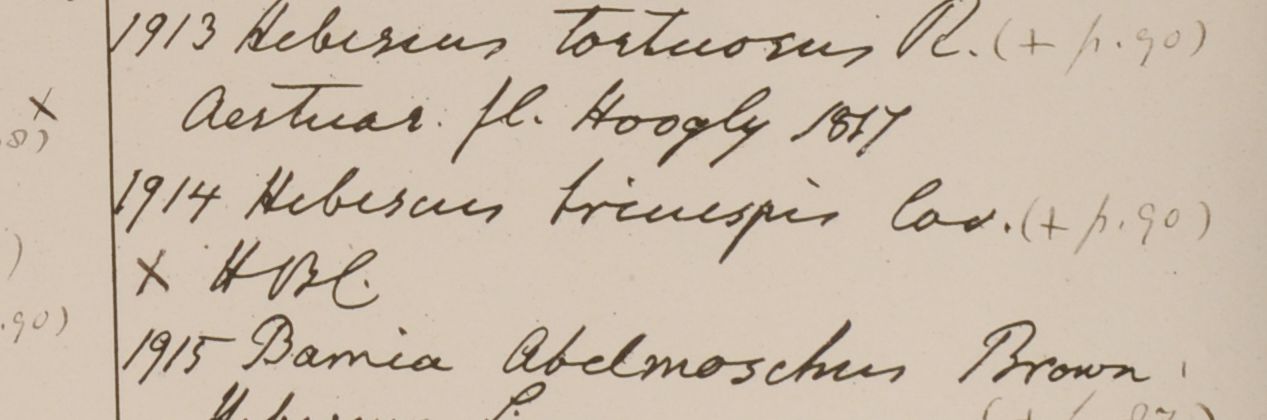 1913 Hibiscus tortuosus R. (+ p. 90)
x
8)
Aestuar. fl. Hoogly 1817
1914 Hibiscus tricuspis Cav. (+ p. 90)
)
x HBC.
.90)
1915 Bamia Abelmoschus Brown
Hibiscus L.